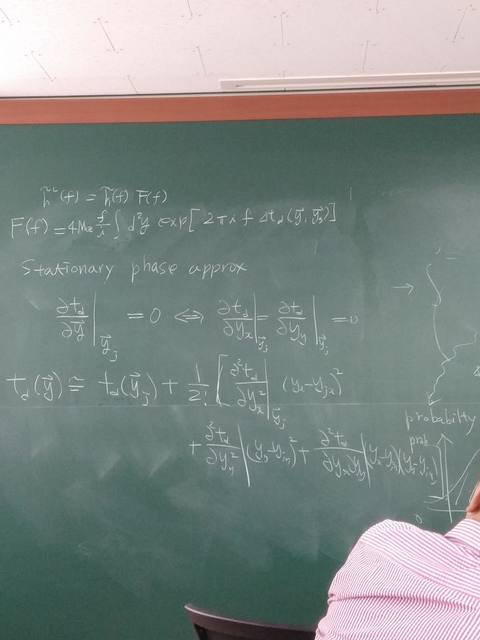 h̃ᴸ(f) = h̃(f) F(f)
F(f) = 4M_z f/i ∫ d²y exp[2πi f Δt_d(y⃗, y⃗_s)]
Stationary phase approx
∂t_d/∂y⃗ |_y⃗_j = 0 ⇔ ∂t_d/∂y_x |_y⃗_j = ∂t_d/∂y_y |_y⃗_j = 0
t_d(y⃗) ≅ t_d(y⃗_j) + 1/2! [ ∂²t_d/∂y_x² |_y⃗_j (y_x - y_jx)²
+ ∂²t_d/∂y_y² | (y_y - y_jy)² + ∂²t_d/∂y_x∂y_y | (y_x - y_jx)(y_y - y_jy) ]
→
probability
prob
0